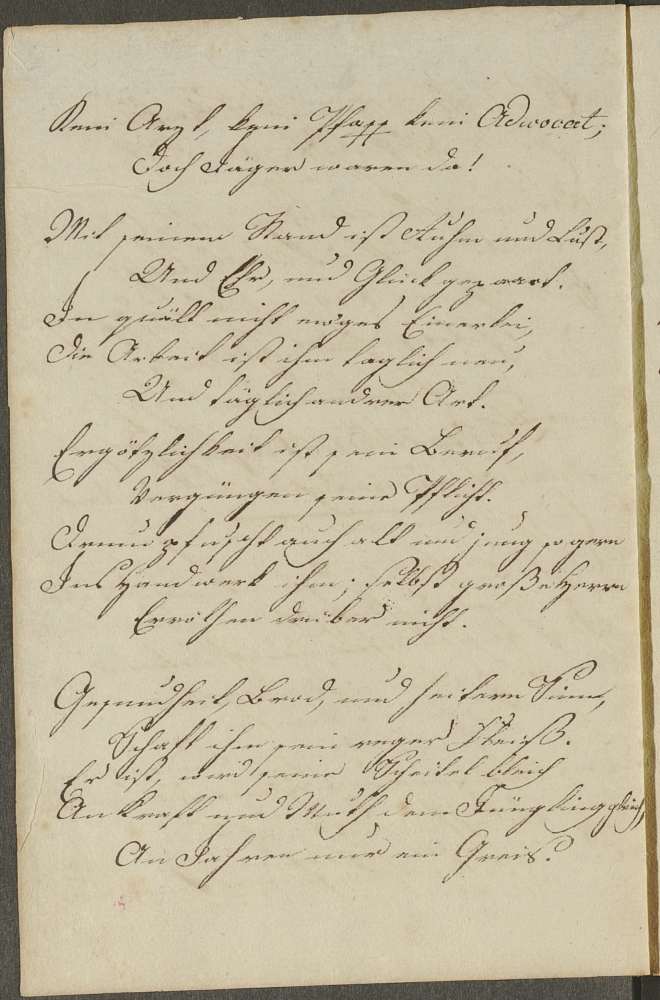 Kein Arzt, kein Pfaff kein Advocat;
Doch Jäger waren da!
Mit seinem Stand ist Ruhm und Lust,
Und Ehr, und Glück gepaart.
In quält nicht ewges Einerlei,
Die Arbeit ist ihm täglich neu,
Und täglich andrer Art.
Ergötzlichkeit ist sein Beruf,
Vergnügen seine Pflicht.
Drum pfuscht auch alt und jung so gern
Ins Handwerk ihm; selbst große Herrn
Erröthen drüber nicht.
Gesundheit, Brod, und heitern Sinn,
Schaft ihm sein reger Fleiß.
Er ist, wird seine Scheitel bleich
An Kraft und Muth dem Jüngling gleich,
An Jahren nur ein Greis.